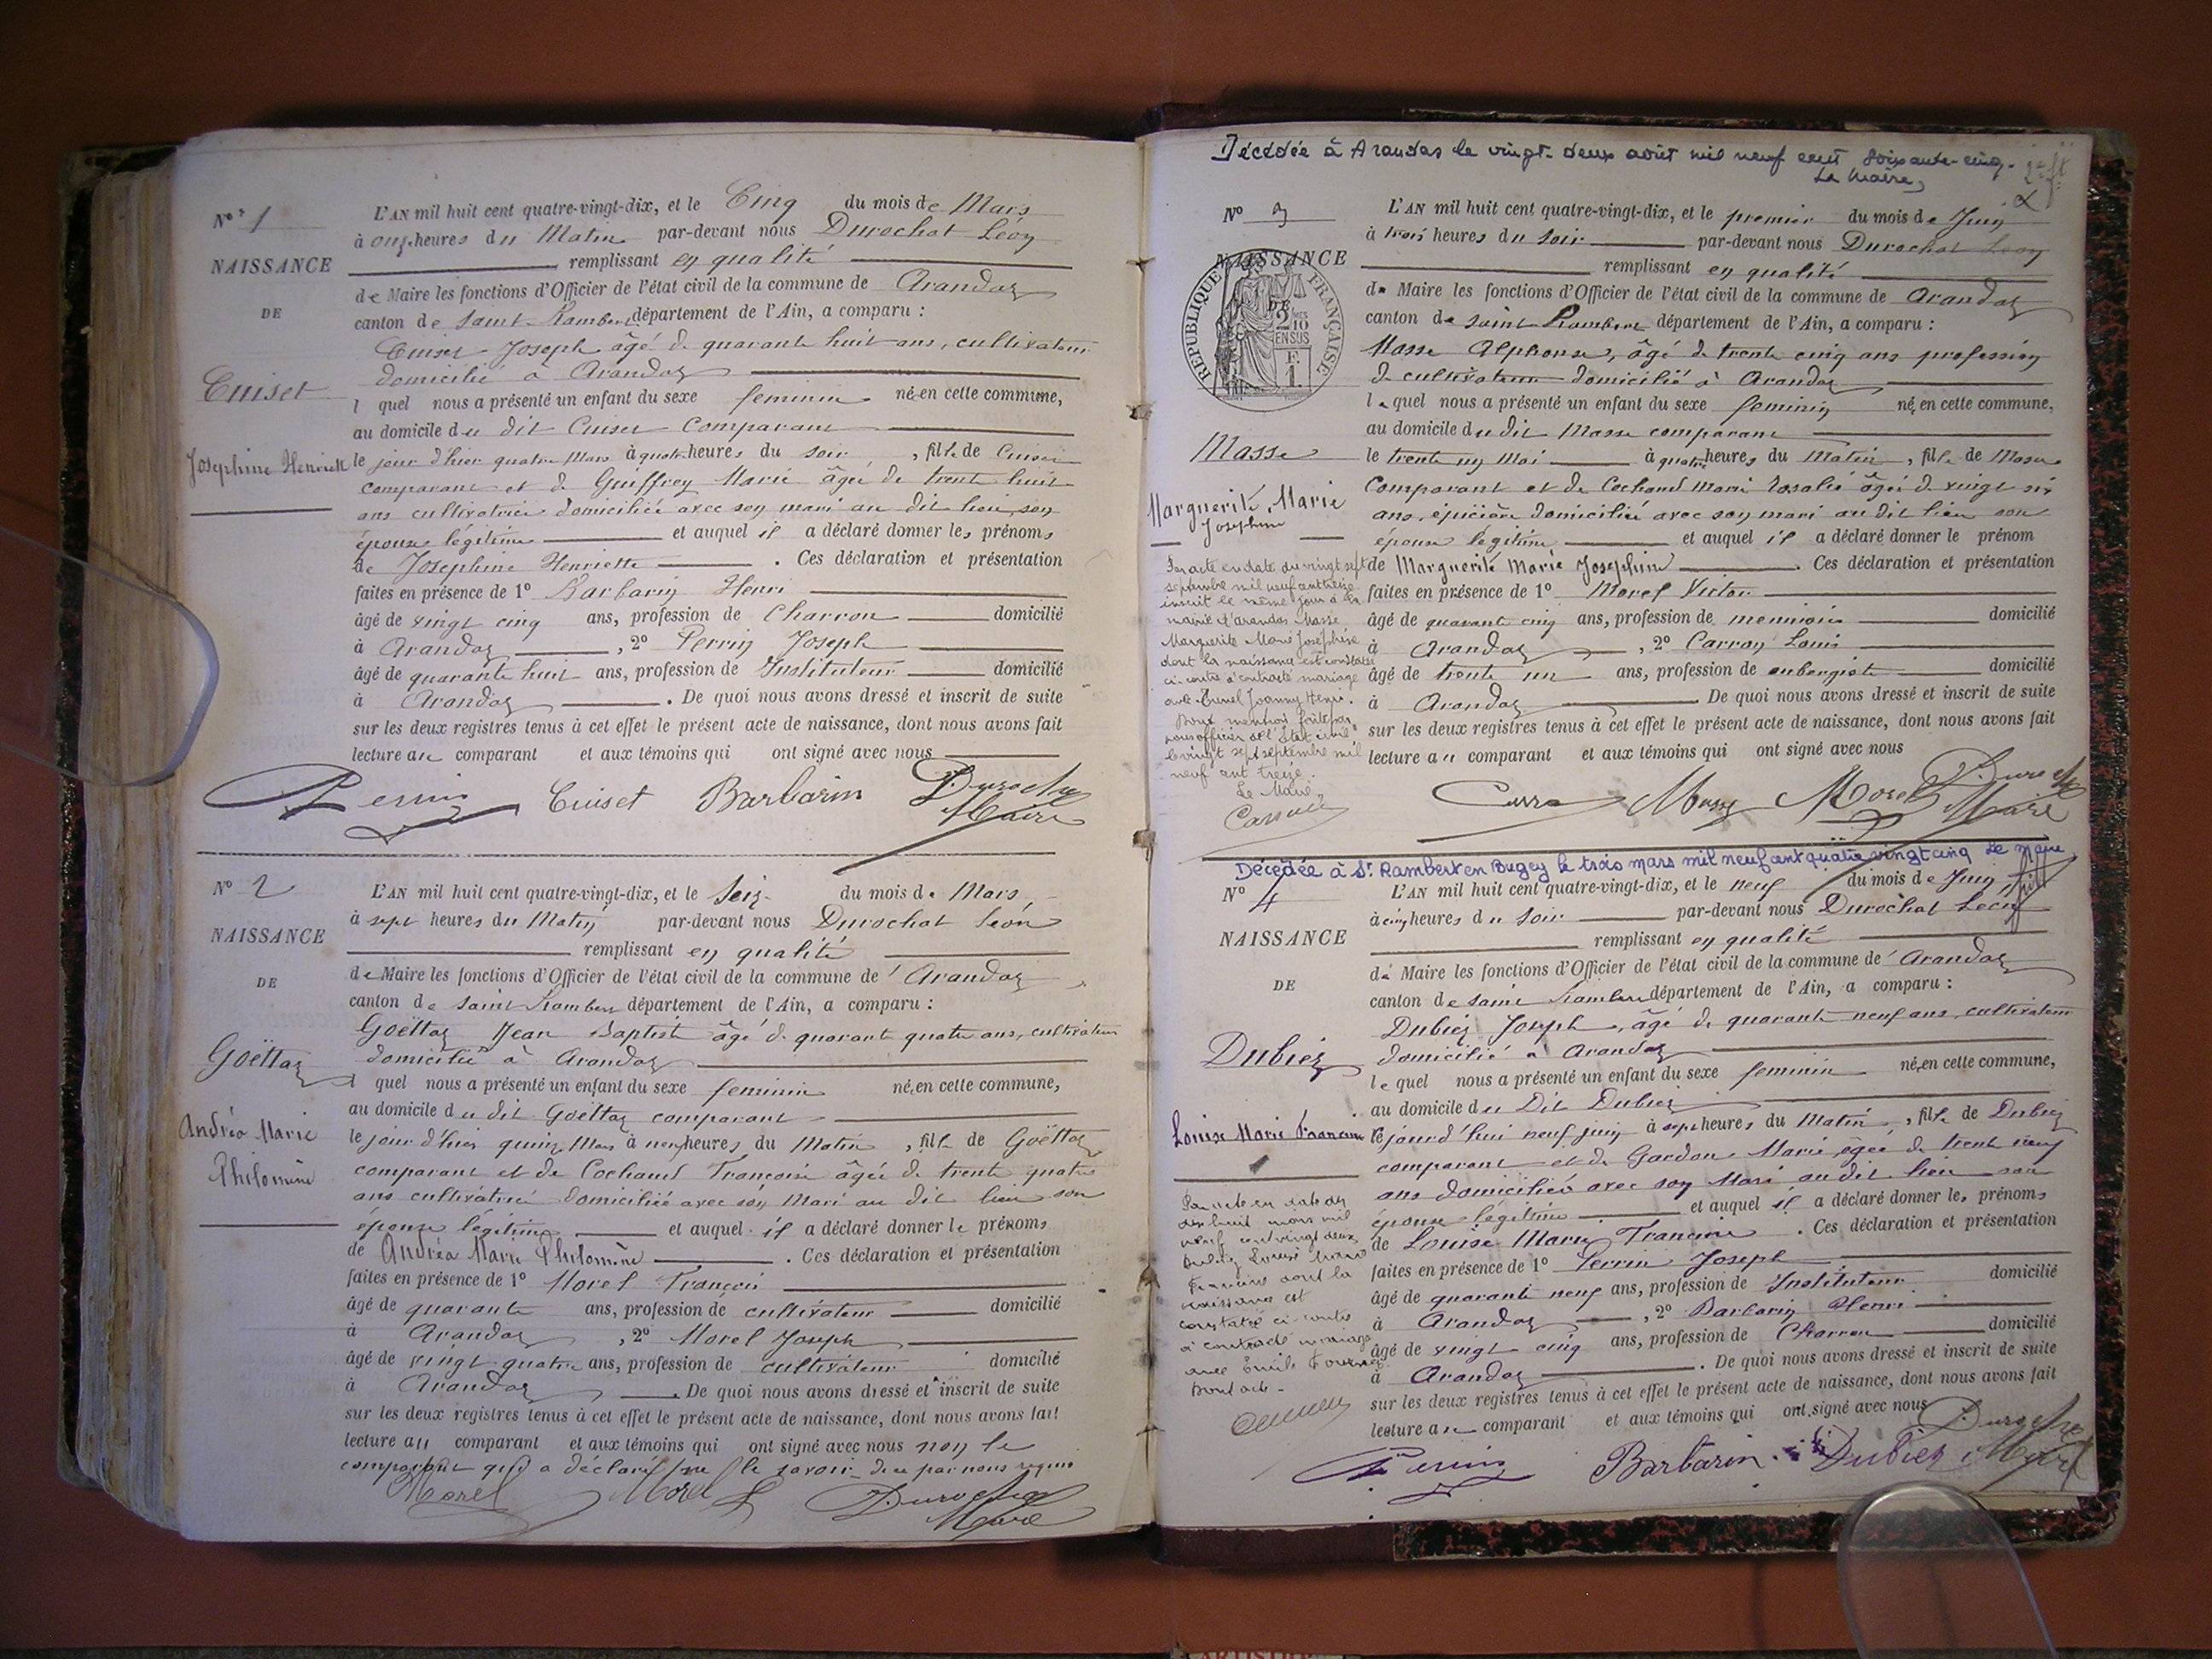 N° 1
NAISSANCE
DE
Cuiset
Josephine Henriette
L'AN mil huit cent quatre-vingt-dix, et le Cinq du mois de Mars
à onze heures du Matin par-devant nous Durochat Léon
remplissant en qualité
de Maire les fonctions d'Officier de l'état civil de la commune de Arandaz
canton de Saint-Rambert département de l'Ain, a comparu :
Cuiset Joseph âgé de quarante huit ans, cultivateur
domicilié à Arandaz
lequel nous a présenté un enfant du sexe feminin né en cette commune,
au domicile du dit Cuiset Comparant
le jour d'hier quatre Mars à quatre heures du soir, fille de Cuiset
comparant et de Guiffrey Marie âgée de trente huit
ans cultivatrice domiciliée avec son mari au dit lieu, son
épouse légitime et auquel il a déclaré donner les prénoms
de Josephine Henriette. Ces déclaration et présentation
faites en présence de 1° Barbarin Henri
âgé de vingt cinq ans, profession de Charron domicilié
à Arandaz, 2° Perrin Joseph
âgé de quarante huit ans, profession de Instituteur domicilié
à Arandaz. De quoi nous avons dressé et inscrit de suite
sur les deux registres tenus à cet effet le présent acte de naissance, dont nous avons fait
lecture au comparant et aux témoins qui ont signé avec nous
Perrin Cuiset Barbarin Durochat
Maire
N° 2
NAISSANCE
DE
Goëttaz
Andréa Marie
Philomène
L'AN mil huit cent quatre-vingt-dix, et le Seize du mois de Mars,
à sept heures du Matin par-devant nous Durochat Léon
remplissant en qualité
de Maire les fonctions d'Officier de l'état civil de la commune de Arandaz,
canton de Saint Rambert département de l'Ain, a comparu :
Goëttaz Jean Baptiste âgé de quarante quatre ans, cultivateur
domicilié à Arandaz
lequel nous a présenté un enfant du sexe feminin né en cette commune,
au domicile du dit Goëttaz comparant
le jour d'hier quinze Mars à neuf heures du Matin, fille de Goëttaz
comparant et de Cochand Françoise âgée de trente quatre
ans cultivatrice domiciliée avec son Mari au dit lieu son
épouse légitime et auquel il a déclaré donner le prénoms
de Andréa Marie Philomène. Ces déclaration et présentation
faites en présence de 1° Morel François
âgé de quarante ans, profession de cultivateur domicilié
à Arandaz, 2° Morel Joseph
âgé de vingt quatre ans, profession de cultivateur domicilié
à Arandaz. De quoi nous avons dressé et inscrit de suite
sur les deux registres tenus à cet effet le présent acte de naissance, dont nous avons fait
lecture au comparant et aux témoins qui ont signé avec nous non le
comparant qui a déclaré ne le savoir de ce par nous requis
Morel Morel J Durochat
Maire
Décédée à Arandas le vingt-deux août mil neuf cent soixante-cinq.
Le Maire,
N° 3
NAISSANCE
DE
RÉPUBLIQUE FRANÇAISE
2/10 EN SUS
F. 1.
Masse
Marguerite, Marie
Josephine
L'AN mil huit cent quatre-vingt-dix, et le premier du mois de Juin
à trois heures du soir par-devant nous Durochat Léon
remplissant en qualité
de Maire les fonctions d'Officier de l'état civil de la commune de Arandaz
canton de Saint-Rambert département de l'Ain, a comparu :
Masse Alphonse, âgé de trente cinq ans profession
de cultivateur domicilié à Arandaz
lequel nous a présenté un enfant du sexe feminin né en cette commune,
au domicile du dit Masse comparant
le trente un Mai à quatre heures du Matin, fille de Masse
Comparant et de Cochand Marie Rosalie âgée de vingt six
ans, épicière domiciliée avec son mari au dit lieu son
épouse légitime et auquel il a déclaré donner le prénom
de Marguerite Marie Josephine. Ces déclaration et présentation
faites en présence de 1° Morel Victor
âgé de quarante cinq ans, profession de menuisier domicilié
à Arandaz, 2° Carron Louis
âgé de trente un ans, profession de aubergiste domicilié
à Arandaz. De quoi nous avons dressé et inscrit de suite
sur les deux registres tenus à cet effet le présent acte de naissance, dont nous avons fait
lecture au comparant et aux témoins qui ont signé avec nous
Par acte en date du vingt sept
septembre mil neuf cent treize
inscrit le même jour à la
mairie d'Arandas Masse
Marguerite Marie Josephine
dont la naissance est constatée
ci-contre a contracté mariage
avec Joanny Henri.
Pour mention faite par
nous officier de l'état civil
le vingt sept septembre mil
neuf cent treize.
Le Maire
Masse Morel Durochat
Maire
Décédée à St Rambert en Bugey le trois mars mil neuf cent quatre vingt cinq Le Maire
N° 4
NAISSANCE
DE
Dubiez
Louise Marie Francine
L'AN mil huit cent quatre-vingt-dix, et le neuf du mois de Juin
à cinq heures du soir par-devant nous Durochat Léon
remplissant en qualité
de Maire les fonctions d'Officier de l'état civil de la commune de Arandaz
canton de Saint Rambert département de l'Ain, a comparu :
Dubiez Joseph, âgé de quarante neuf ans, cultivateur
domicilié à Arandaz
lequel nous a présenté un enfant du sexe feminin né en cette commune,
au domicile du Dit Dubiez
le jourd'hui neuf juin à sept heures du Matin, fille de Dubiez
comparant et de Gardon Marie, âgée de trente neuf
ans domiciliée avec son Mari au dit lieu son
épouse légitime et auquel il a déclaré donner les prénoms
de Louise Marie Francine. Ces déclaration et présentation
faites en présence de 1° Perrin Joseph
âgé de quarante neuf ans, profession de Instituteur domicilié
à Arandaz, 2° Barbarin Henri
âgé de vingt cinq ans, profession de Charron domicilié
à Arandaz. De quoi nous avons dressé et inscrit de suite
sur les deux registres tenus à cet effet le présent acte de naissance, dont nous avons fait
lecture au comparant et aux témoins qui ont signé avec nous
Par acte en date du
dix huit mars mil
neuf cent vingt deux,
Dubiez Louise Marie
Francine dont la
naissance est
constatée ci-contre
a contracté mariage
avec Emile
Dont acte -
Perrin Barbarin Dubiez Durochat
Maire